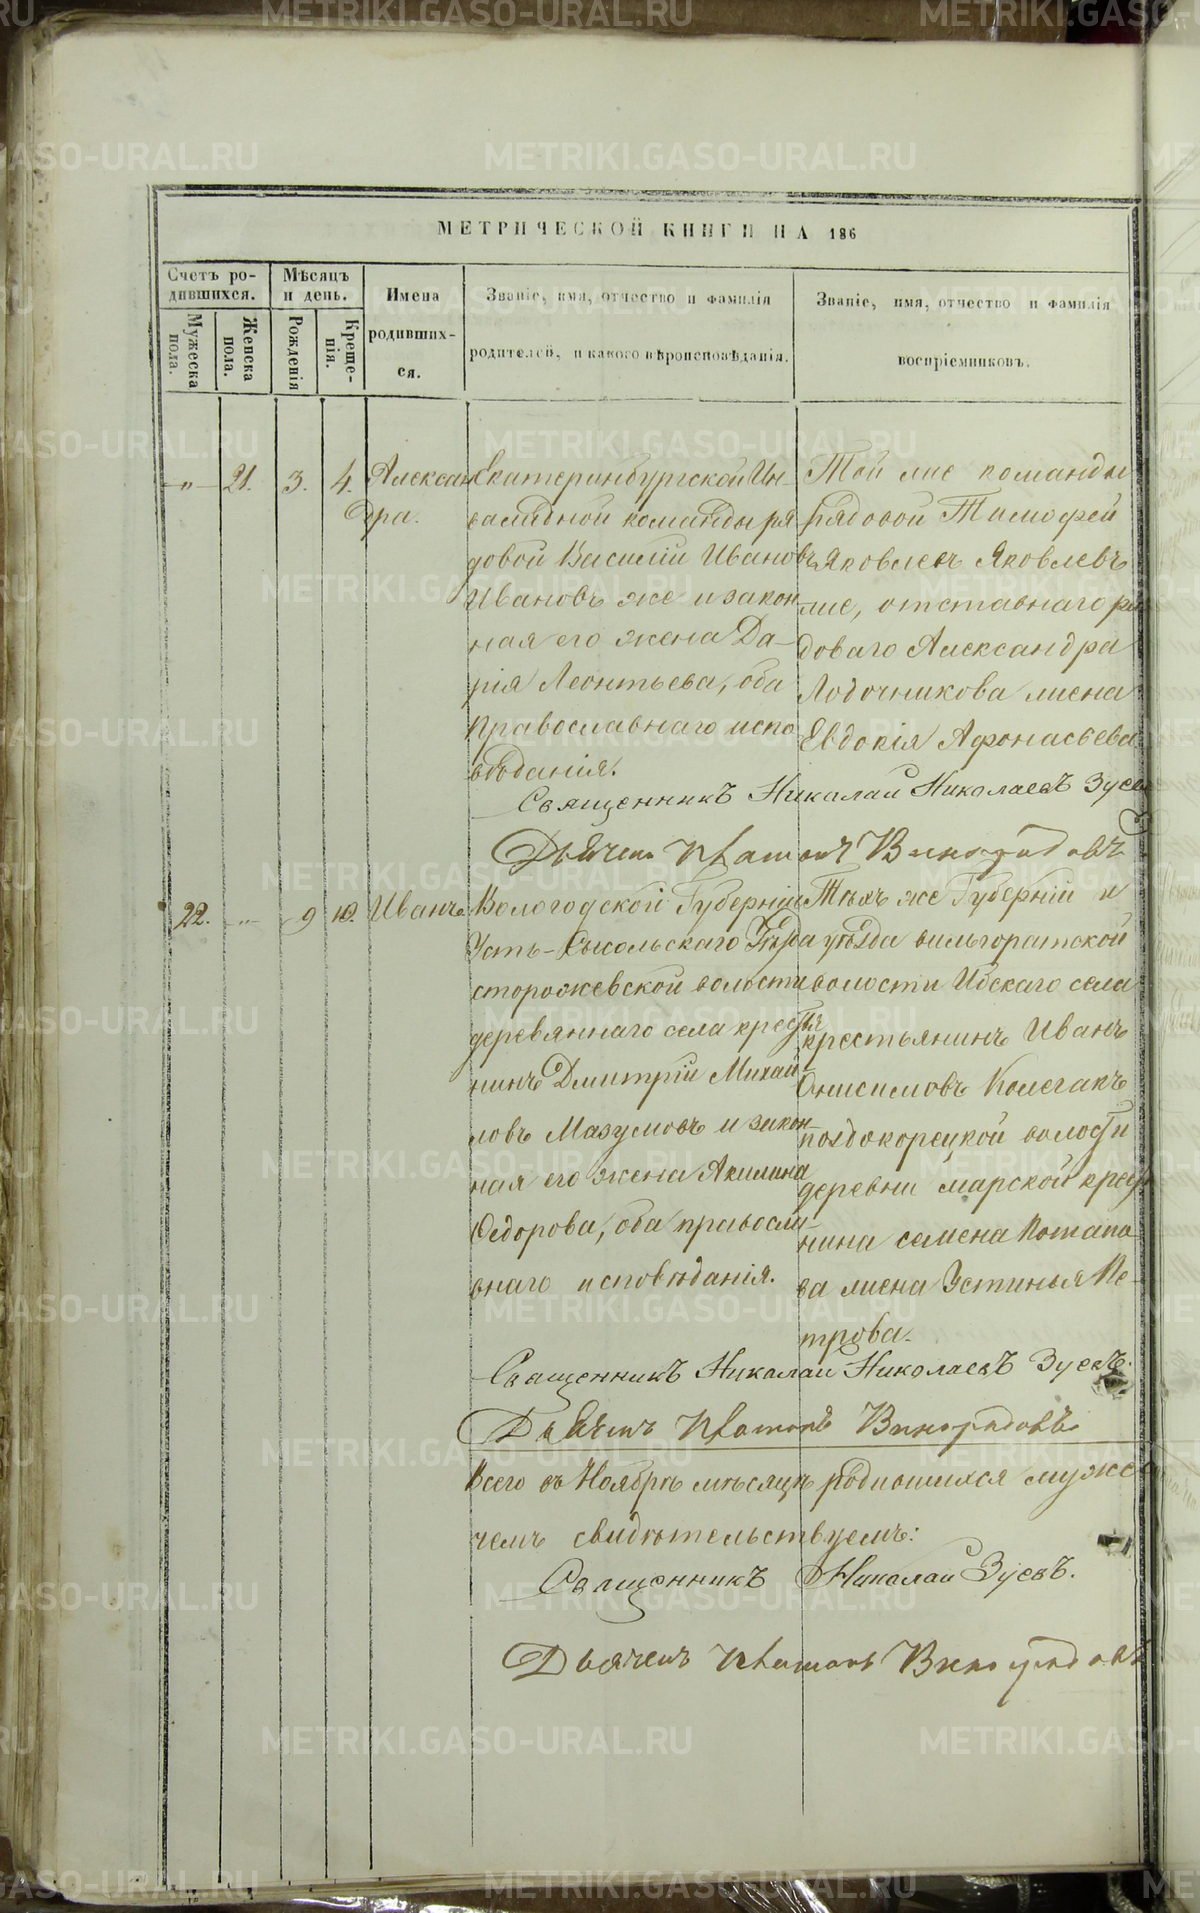 МЕТРИЧЕСКОЙ КНИГИ НА 186
Счетъ ро-
дившихся.
Мѣсяцъ
и день.
Имена
родивших-
ся.
Званіе, имя, отчество и фамилія
родителей, и какого вѣроисповѣданія.
Званіе, имя, отчество и фамилія
воспріемниковъ.
Мужеска
пола.
Женска
пола.
Рожденія
Креще-
нія.
-"- 21. 3. 4.
Алексан
дра.
Екатеринбургской Ин-
валидной команды ря
довой Василій Ивановъ
Ивановъ же и закон
ная его жена Да-
рія Леонтьева, оба
Православнаго испо
вѣданія.
Той же команды
рядовой Тимофей
Яковлевъ Яковлевъ
же, отставнаго ря
доваго Александра
Лодочникова жена
Евдокія Афонасьева
Священникъ Николай Николаевъ Зуевъ
Дьячекъ Платонъ Виноградовъ
22. -"- 9 10. Иванъ
Вологодской Губерніи
Усть-Сысольскаго Уѣзда
сторожевской волости
деревяннаго села крестья
нинъ Дмитрій Михай
ловъ Мазумовъ и закон
ная его жена Акилина
Ѳедорова, оба правосла
внаго исповѣданія.
Тѣхъ же Губерніи и
уѣзда вильгортской
волости Ибскаго села
крестьянинъ Иванъ
Онисимовъ Колегакъ
деревни марской крест
нина семена Потапо-
ва жена Устинья Пе-
трова.
Священникъ Николай Николаевъ Зуевъ.
Дьячекъ Платонъ Виноградовъ
Всего въ Ноябрѣ мѣсяцѣ родившихся мужес
чемъ свидѣтельствуемъ:
Священникъ Николай Зуевъ.
Дьячекъ Платонъ Виноградовъ
METRIKI.GASO-URAL.RU